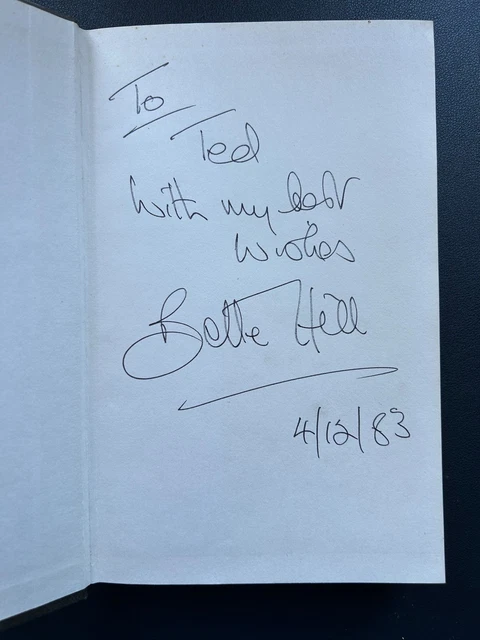 To
Ted
With my best
wishes
Bette Hill
4/12/83